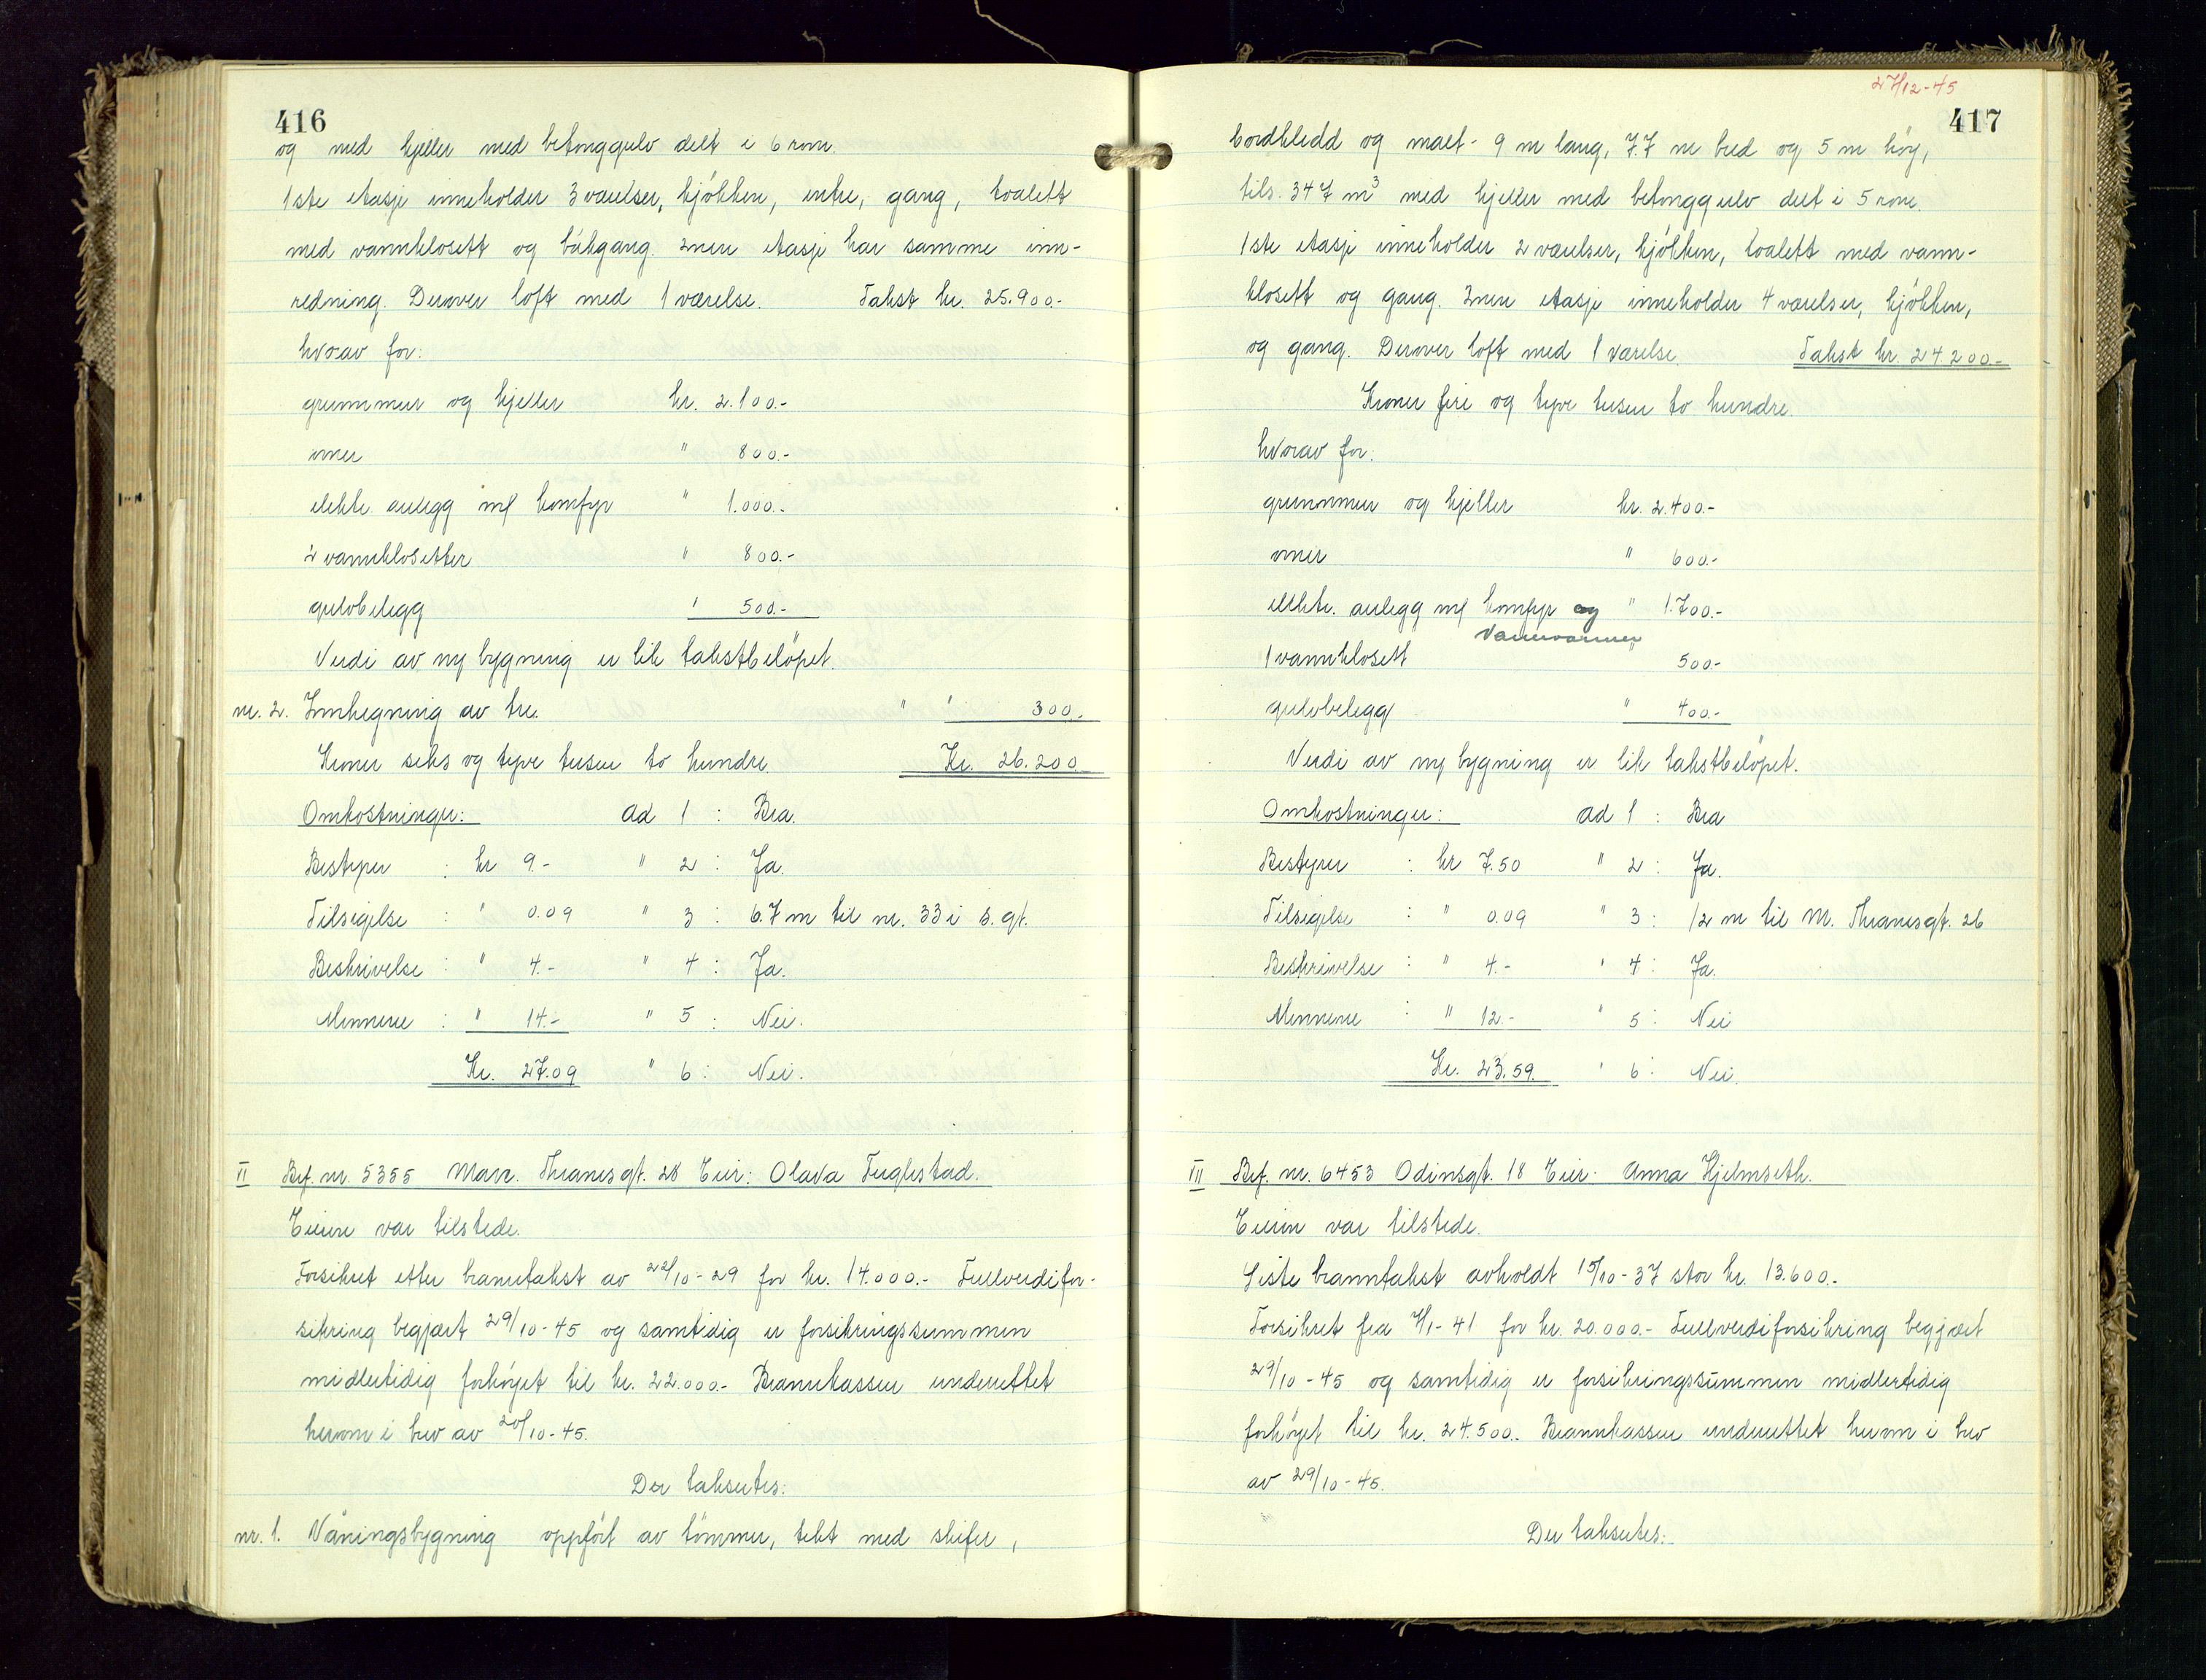 416
og med kjeller med betonggulv delt i 6 rom.
1ste etasje inneholder 3 værelser, kjøkken, entre, gang, toalett
med vannklosett og bakgang. 2nen etasje har samme inn-
redning. Derover loft med 1 værelse. Takst kr. 25.900.-
hvorav for:
grunnmur og kjeller kr. 2.100.-
ovner " 800.-
elektr. anlegg m/ komfyr " 1.000.-
2 vannklosetter " 800.-
gulvbelegg " 500.-
Verdi av ny bygning er lik takstbeløpet.
nr. 2. Innhegning av tre. " " 300.-
Kroner seks og tyve tusen to hundre. Kr. 26.200.
Omkostninger: ad 1 : Bra.
Bestyrer : kr 9.- " 2 : Ja.
Tilsigelse : " 0.09 " 3 : 6.7 m til nr. 33 i s. gt.
Beskrivelse : " 4.- " 4 : Ja.
Mennene : " 14.- " 5 : Nei.
Kr. 27.09 " 6 : Nei.
II Bef. nr. 5355 Marc. Thranesgt. 28 Eier: Olava Fuglestad.
Eieren var tilstede.
Forsikret etter branntakst av 22/10-29 for kr. 14.000.- Fullverdifor-
sikring begjært 29/10-45 og samtidig er forsikringssummen
midlertidig forhøyet til kr. 22.000.- Brannkassen underrettet
herom i brev av 20/10-45.
Der takseres:
nr. 1. Våningsbygning oppført av tømmer, tekt med skifer,
27/12-45
417
bordkledd og malt - 9 m lang, 7.7 m bred og 5 m høy,
tils. 347 m³ med kjeller med betonggulv delt i 5 rom.
1ste etasje inneholder 2 værelser, kjøkken, toalett med vann-
klosett og gang. 2nen etasje inneholder 4 værelser, kjøkken,
og gang. Derover loft med 1 værelse. Takst kr. 24.200.-
Kroner fire og tyve tusen to hundre.
hvorav for:
grunnmur og kjeller kr. 2.400.-
ovner " 600.-
elektr. anlegg m/ komfyr og " 1.700.-
vannvarmer
1 vannklosett " 500.-
gulvbelegg " 400.-
Verdi av ny bygning er lik takstbeløpet.
Omkostninger: ad 1 : Bra
Bestyrer : kr 7.50 " 2 : Ja.
Tilsigelse : " 0.09 " 3 : 12 m til M. Thranesgt. 26
Beskrivelse : " 4.- " 4 : Ja.
Mennene : " 12.- " 5 : Nei
Kr. 23.59. " 6 : Nei.
III Bef. nr. 6453 Odinsgt. 18 Eier: Anna Hjelmseth.
Eieren var tilstede.
Siste branntakst avholdt 15/10-37 stor kr. 13.600.-
Forsikret fra 4/1-41 for kr. 20.000.- Fullverdiforsikring begjært
29/10-45 og samtidig er forsikringssummen midlertidig
forhøyet til kr. 24.500. Brannkassen underrettet herom i brev
av 29/10-45.
Der takseres: